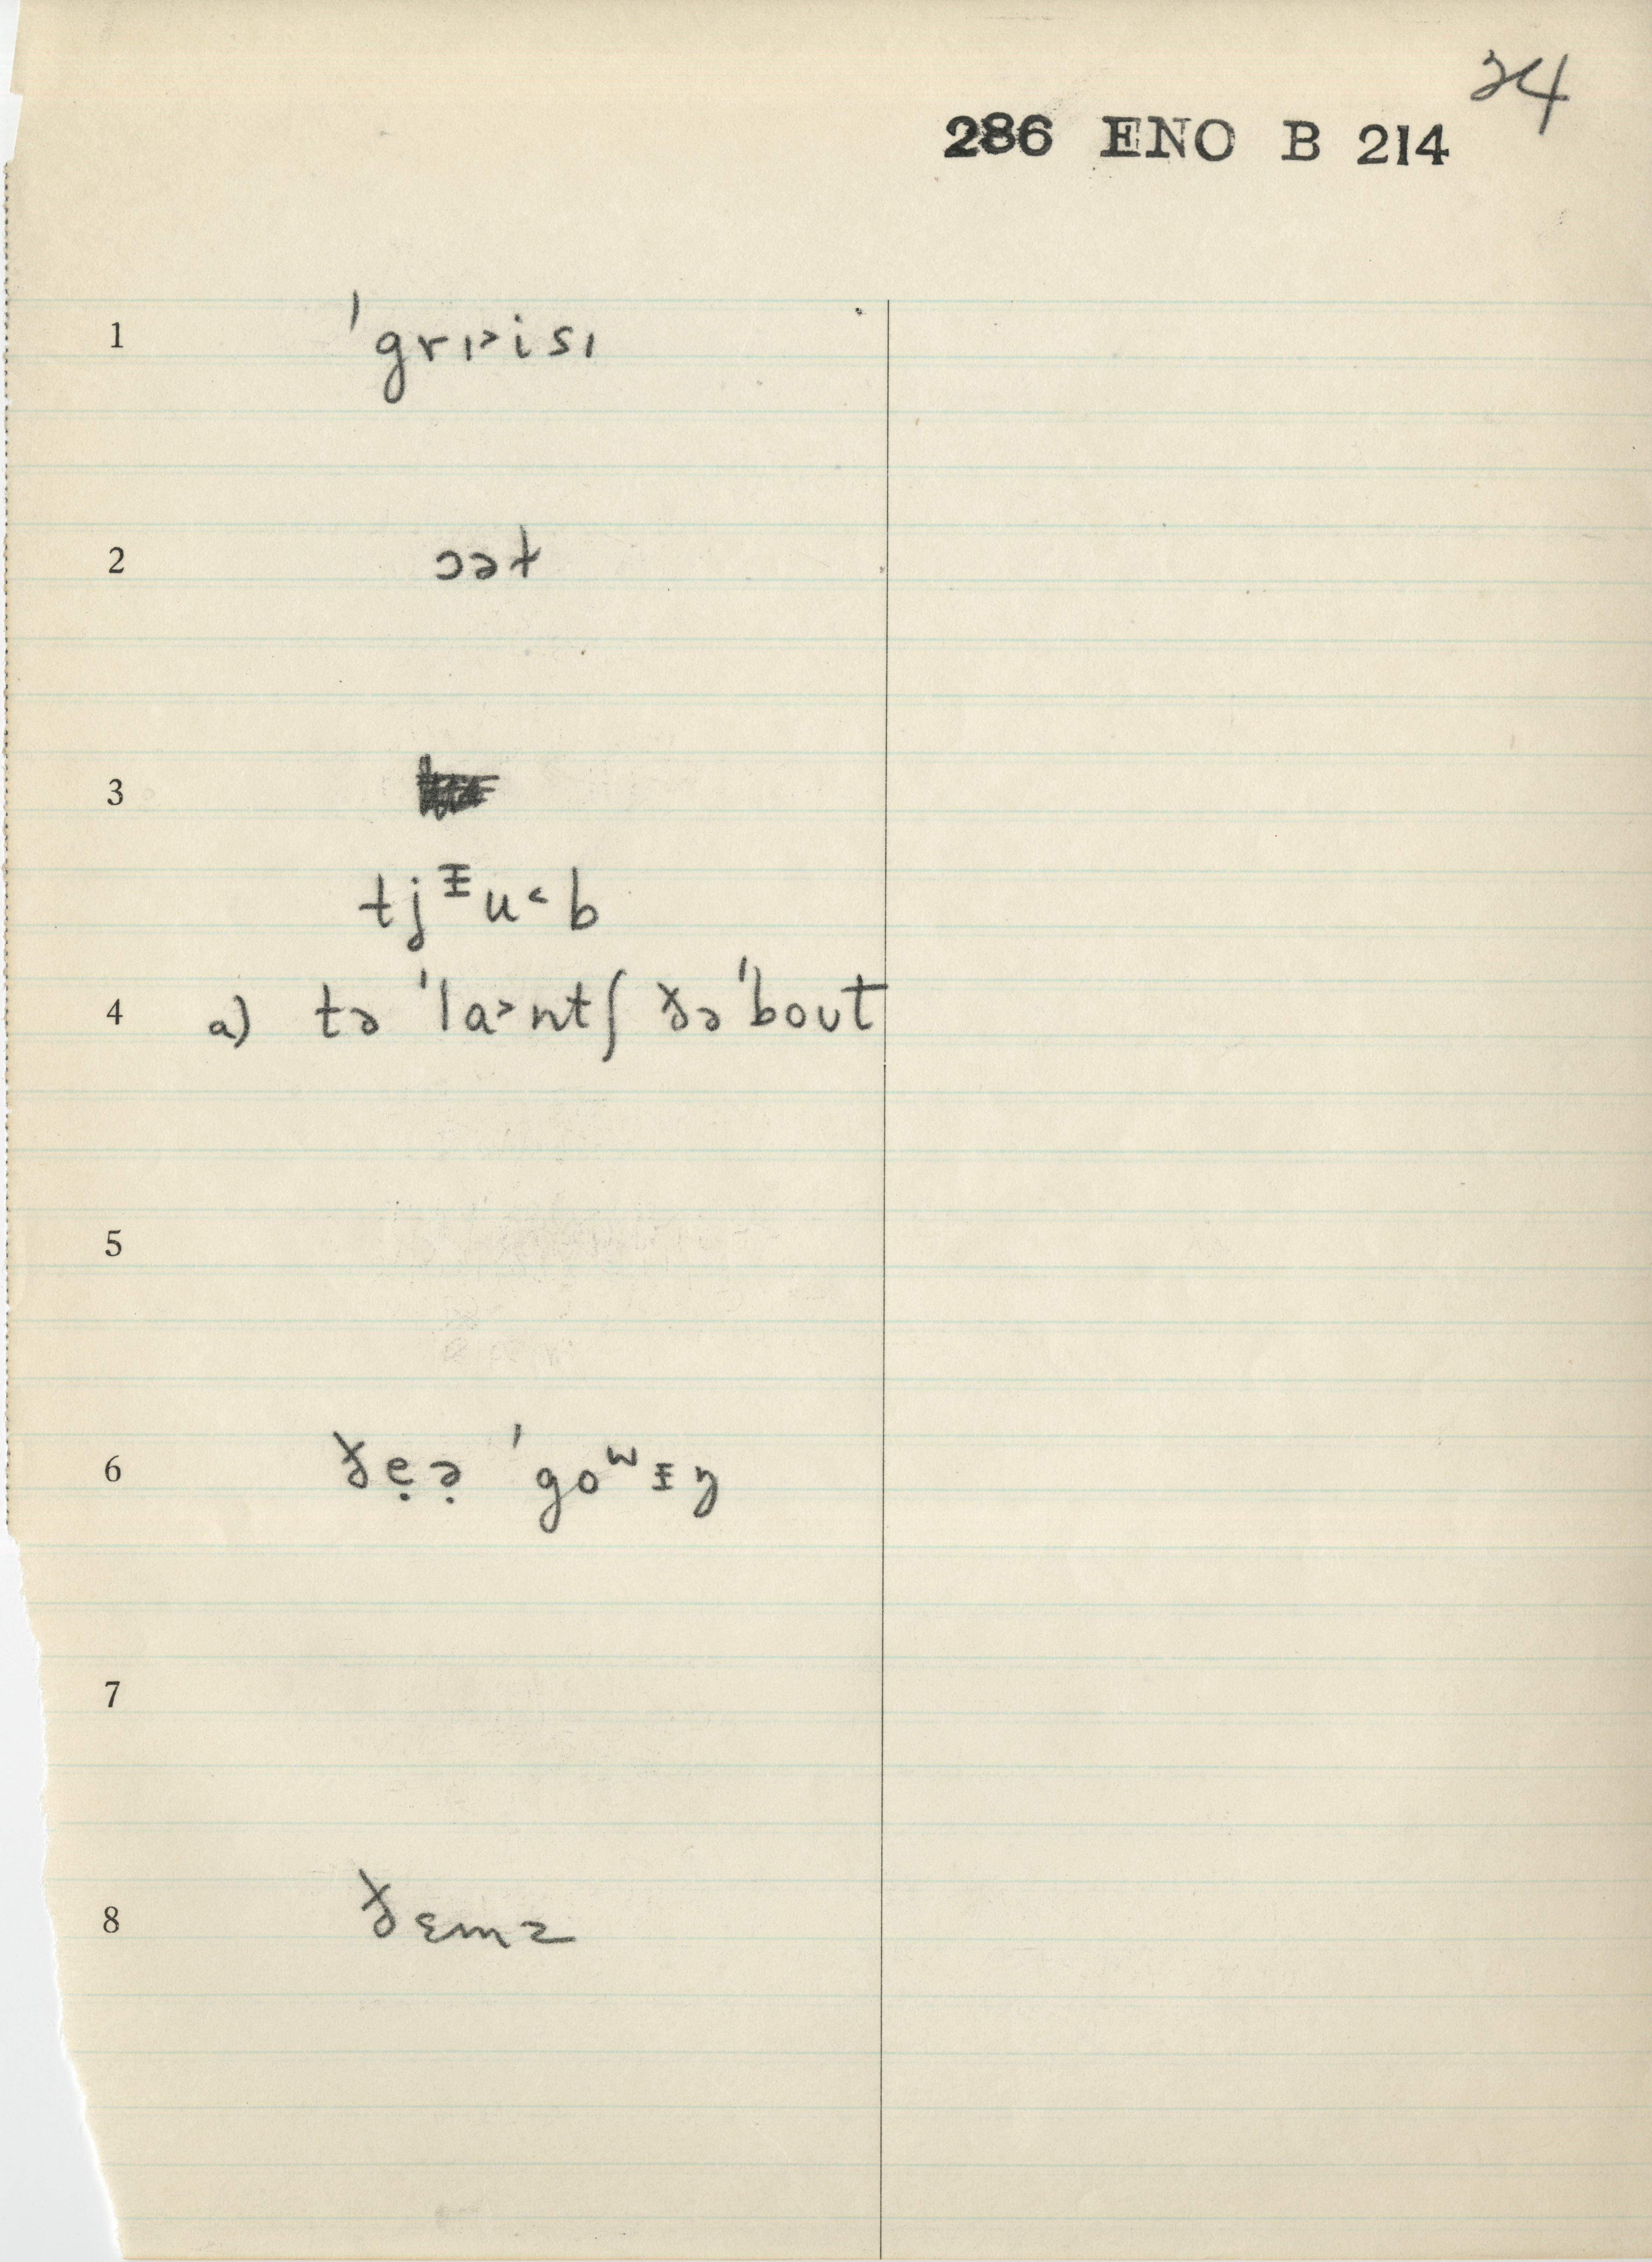 34
286 ENO B 214
1 ˈgrɪ˃isɪ
2 ɔət
3
tjᵻu˂b
4 a) tə ˈla˃ntʃ ðə ˈbout
5
6 ðẹə̣ ˈgoʷᵻŋ
7
8 ðɛmz